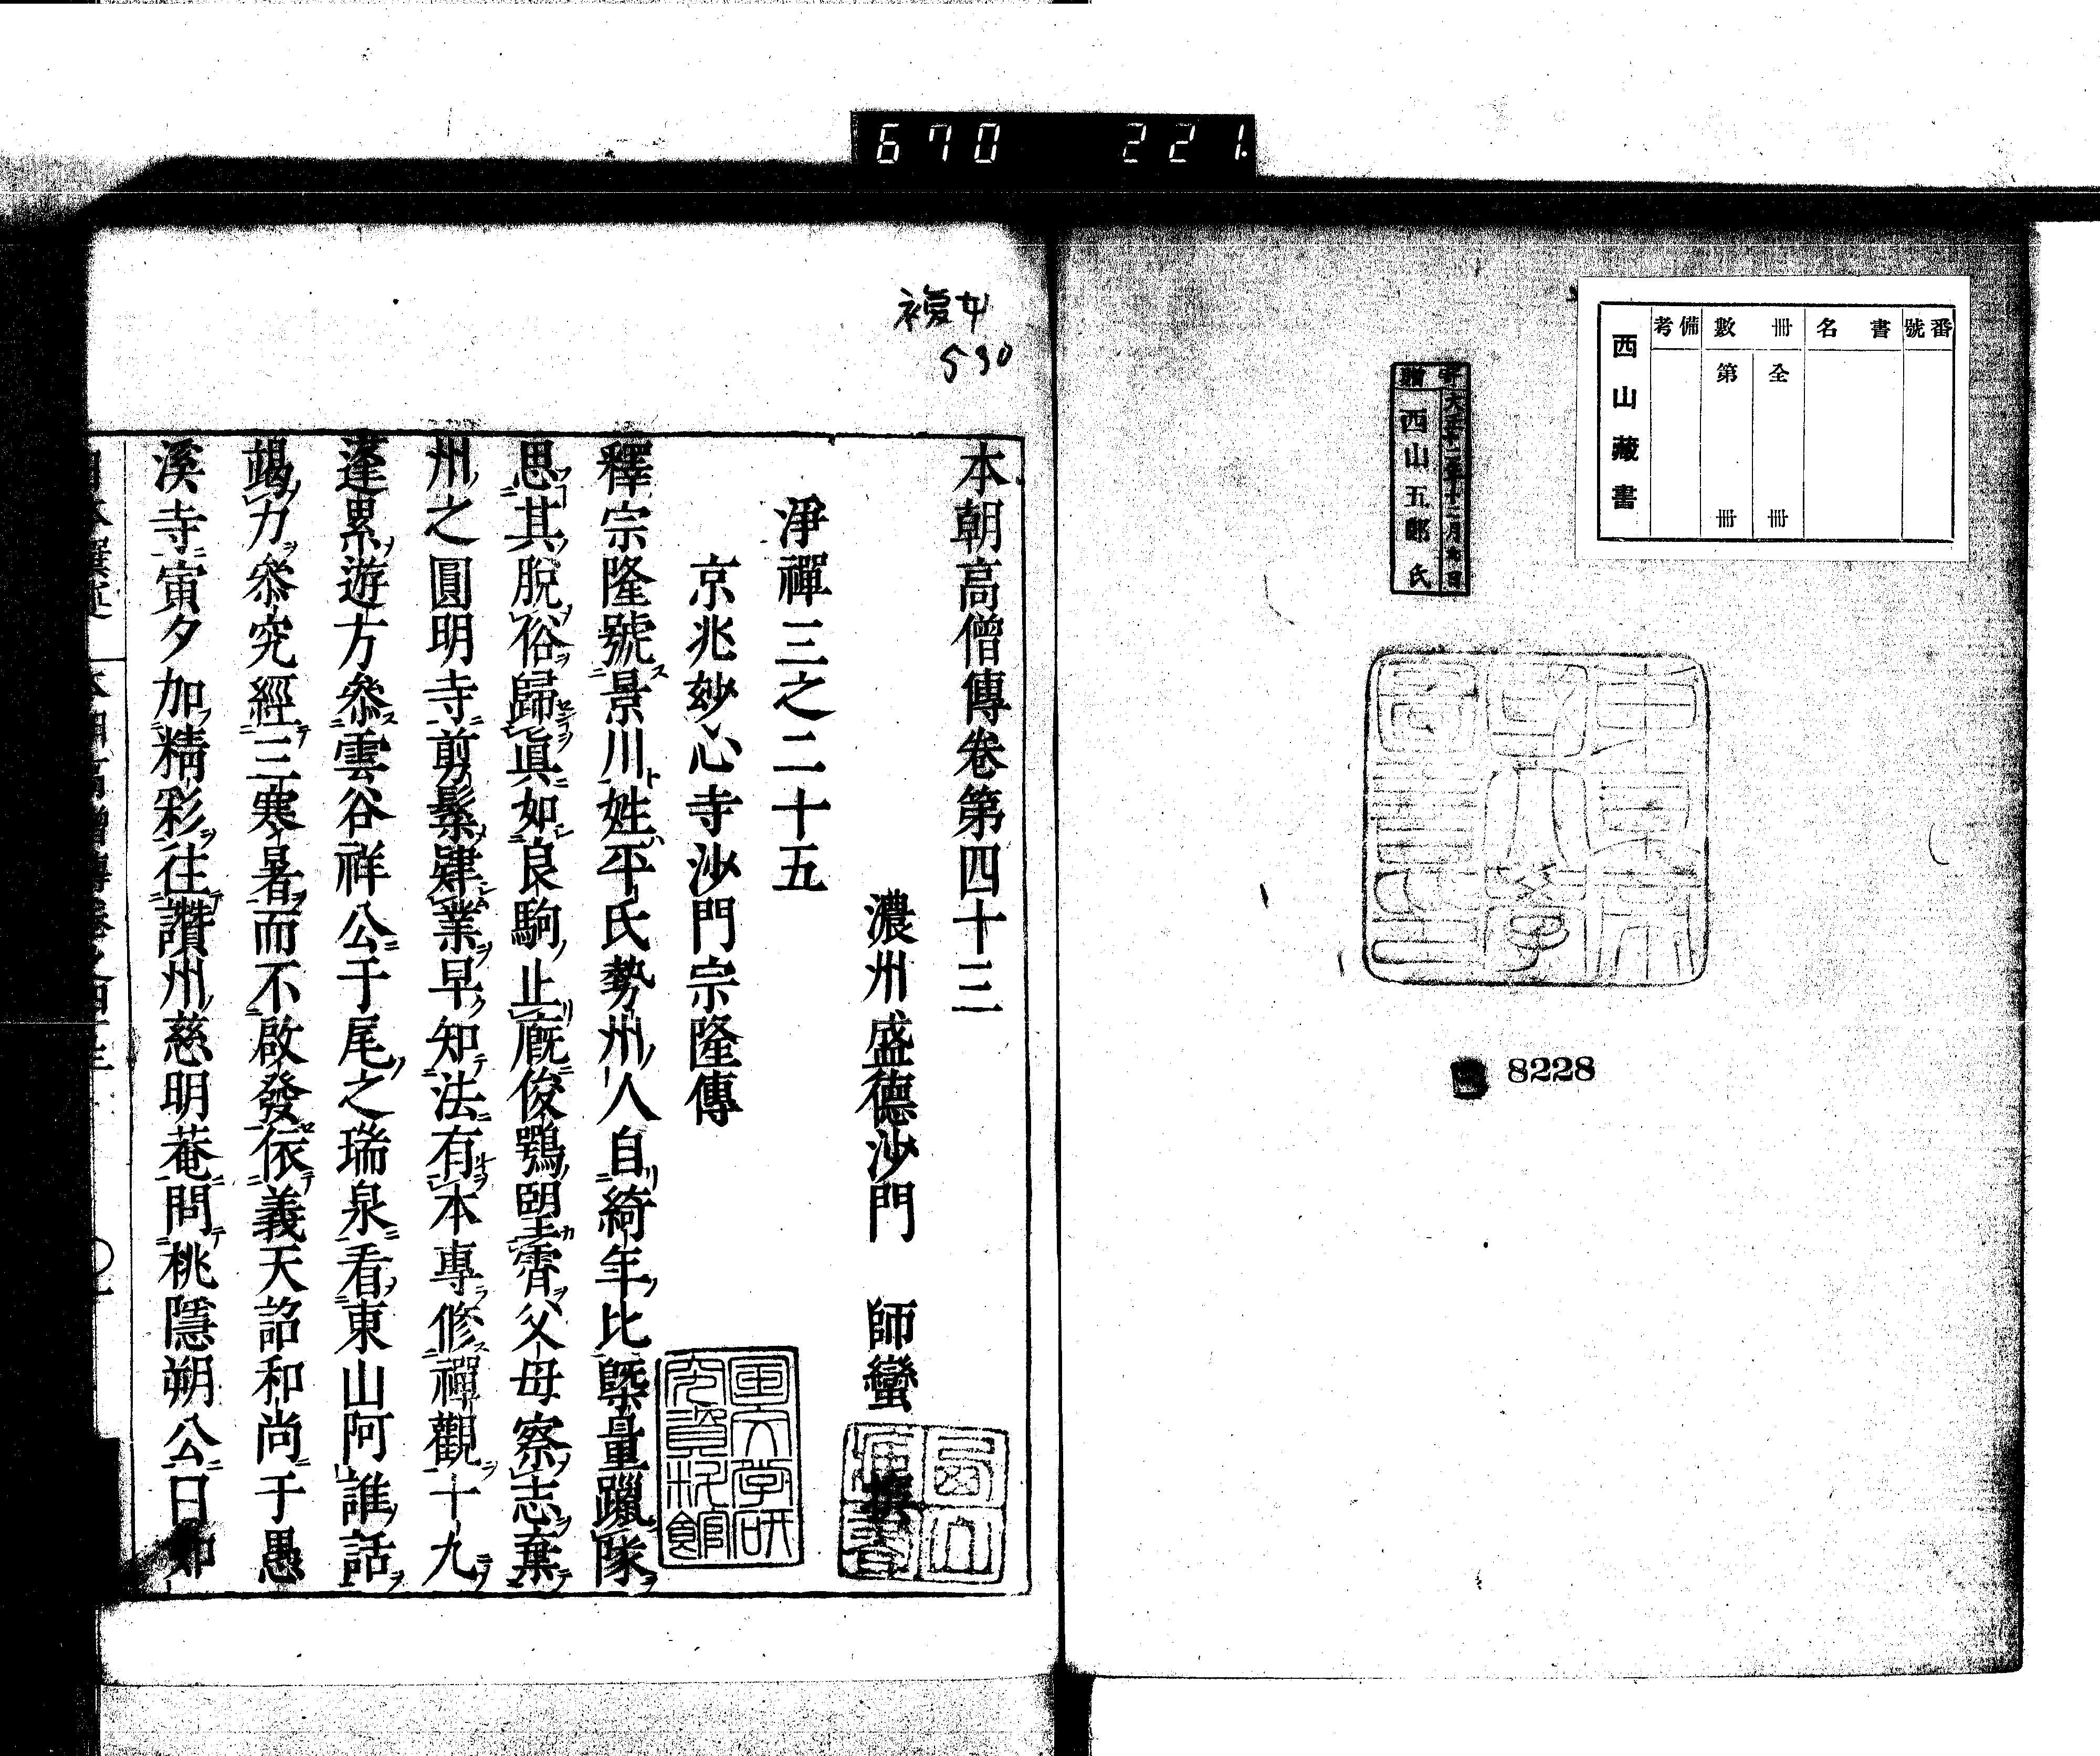 670 221
番號
書名
冊數
備考
全 冊
第 冊
西山藏書
寄贈
大正十二年十二月 日
西山五郎氏
東京帝國大學圖書印
8228
複女
590
本朝高僧傳卷第四十三
濃州盛德沙門 師蠻 撰
淨禪三之二十五
京兆妙心寺沙門宗隆傳
釋宗隆號景川姓平氏勢州人自綺年比槩量躐隊
思其脫俗歸眞如良駒止廐俊鶚望霄父母察志棄
州之圓明寺剪髮肄業早知法有本專修禪觀十九
蓬累遊方叅雲谷祥公于尾之瑞泉看東山阿誰話
竭力叅究經三寒暑而不啟發依義天詔和尚于愚
溪寺寅夕加精彩往讚州慈明菴問桃隱朔公曰
國文学研究資料館